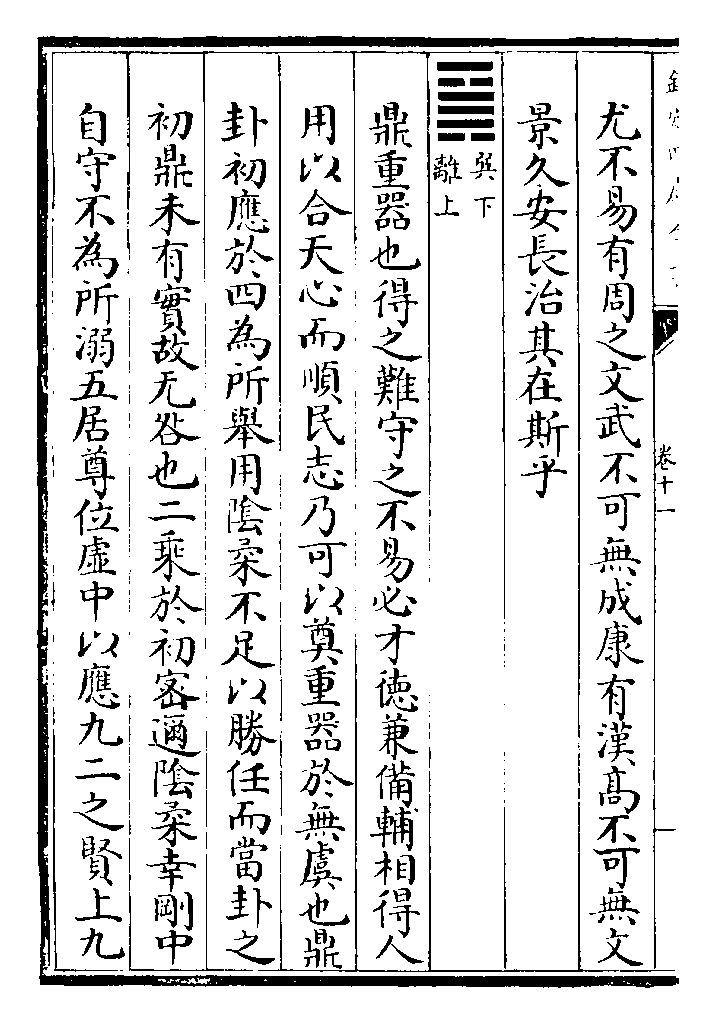 尤不易有周之文武不可無成康有漢髙不可無文
景久安長治其在斯乎
䷱巽下
離上
鼎重器也得之難守之不易必才徳兼備輔相得人
用以合天心而順民志乃可以奠重器於無虞也鼎
卦初應於四為所舉用陰柔不足以勝任而當卦之
初鼎未有實故无咎也二乘於初宻邇陰柔幸剛中
自守不為所溺五居尊位虛中以應九二之賢上九
卷十一